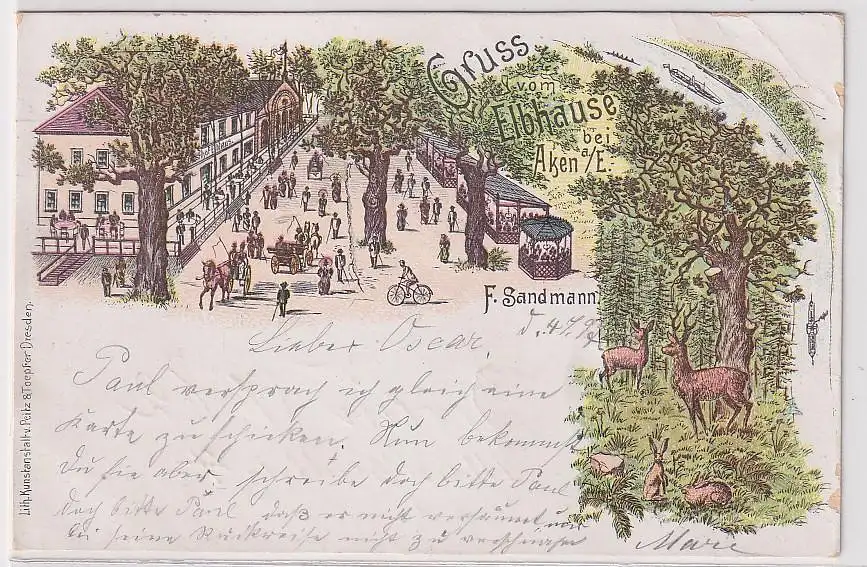 Gruss
vom
Elbhause
bei
Aken a/E.
F. Sandmann.
Lith. Kunstanstalt v. Peitz & Toepfer Dresden.
d. 4.7.97
Lieber Oscar,
Paul versprach ich gleich eine
Karte zu schicken. Nun bekommst
Du sie aber, schreibe doch bitte Paul
doch bitte Paul daß er nicht versäumt uns
bei seine Rückreise nicht zu
Marie